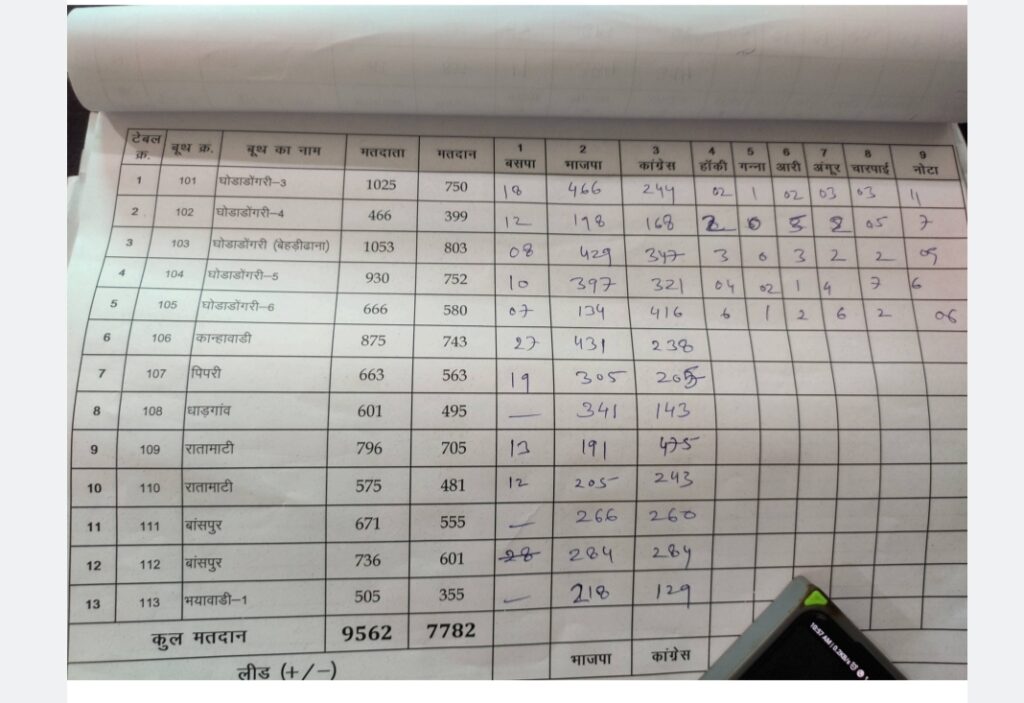 टेबल क्र. बूथ क्र. बूथ का नाम मतदाता मतदान 1 बसपा 2 भाजपा 3 कांग्रेस 4 हॉकी 5 गन्ना 6 आरी 7 अंगूर 8 चारपाई 9 नोटा
1 101 घोडाडोंगरी-3 1025 750 18 466 244 02 1 02 03 03 11
2 102 घोडाडोंगरी-4 466 399 12 198 168 2 0 5 2 05 7
3 103 घोडाडोंगरी (बेहड़ीढाना) 1053 803 08 429 347 3 0 3 2 2 09
4 104 घोडाडोंगरी-5 930 752 10 397 321 04 02 1 4 7 6
5 105 घोडाडोंगरी-6 666 580 07 134 416 6 1 2 6 2 06
6 106 कान्हावाडी 875 743 27 431 238
7 107 पिपरी 663 563 19 305 205
8 108 धाड़गांव 601 495 — 341 143
9 109 रातामाटी 796 705 13 191 475
10 110 रातामाटी 575 481 12 205 243
11 111 बांसपुर 671 555 — 266 260
12 112 बांसपुर 736 601 28 284 284
13 113 भयावाडी-1 505 355 — 218 129
कुल मतदान 9562 7782
लीड (+/-) भाजपा कांग्रेस
10:57 AM